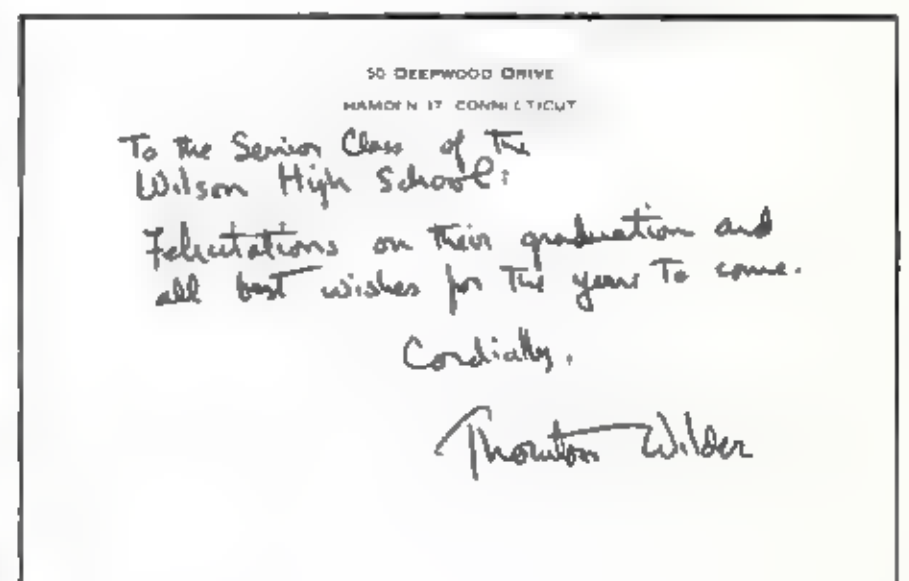 50 DEEPWOOD DRIVE
HAMDEN 17 CONNECTICUT
To the Senior Class of the
Wilson High School:
Felicitations on their graduation and
all best wishes for the years to come.
Cordially,
Thornton Wilder